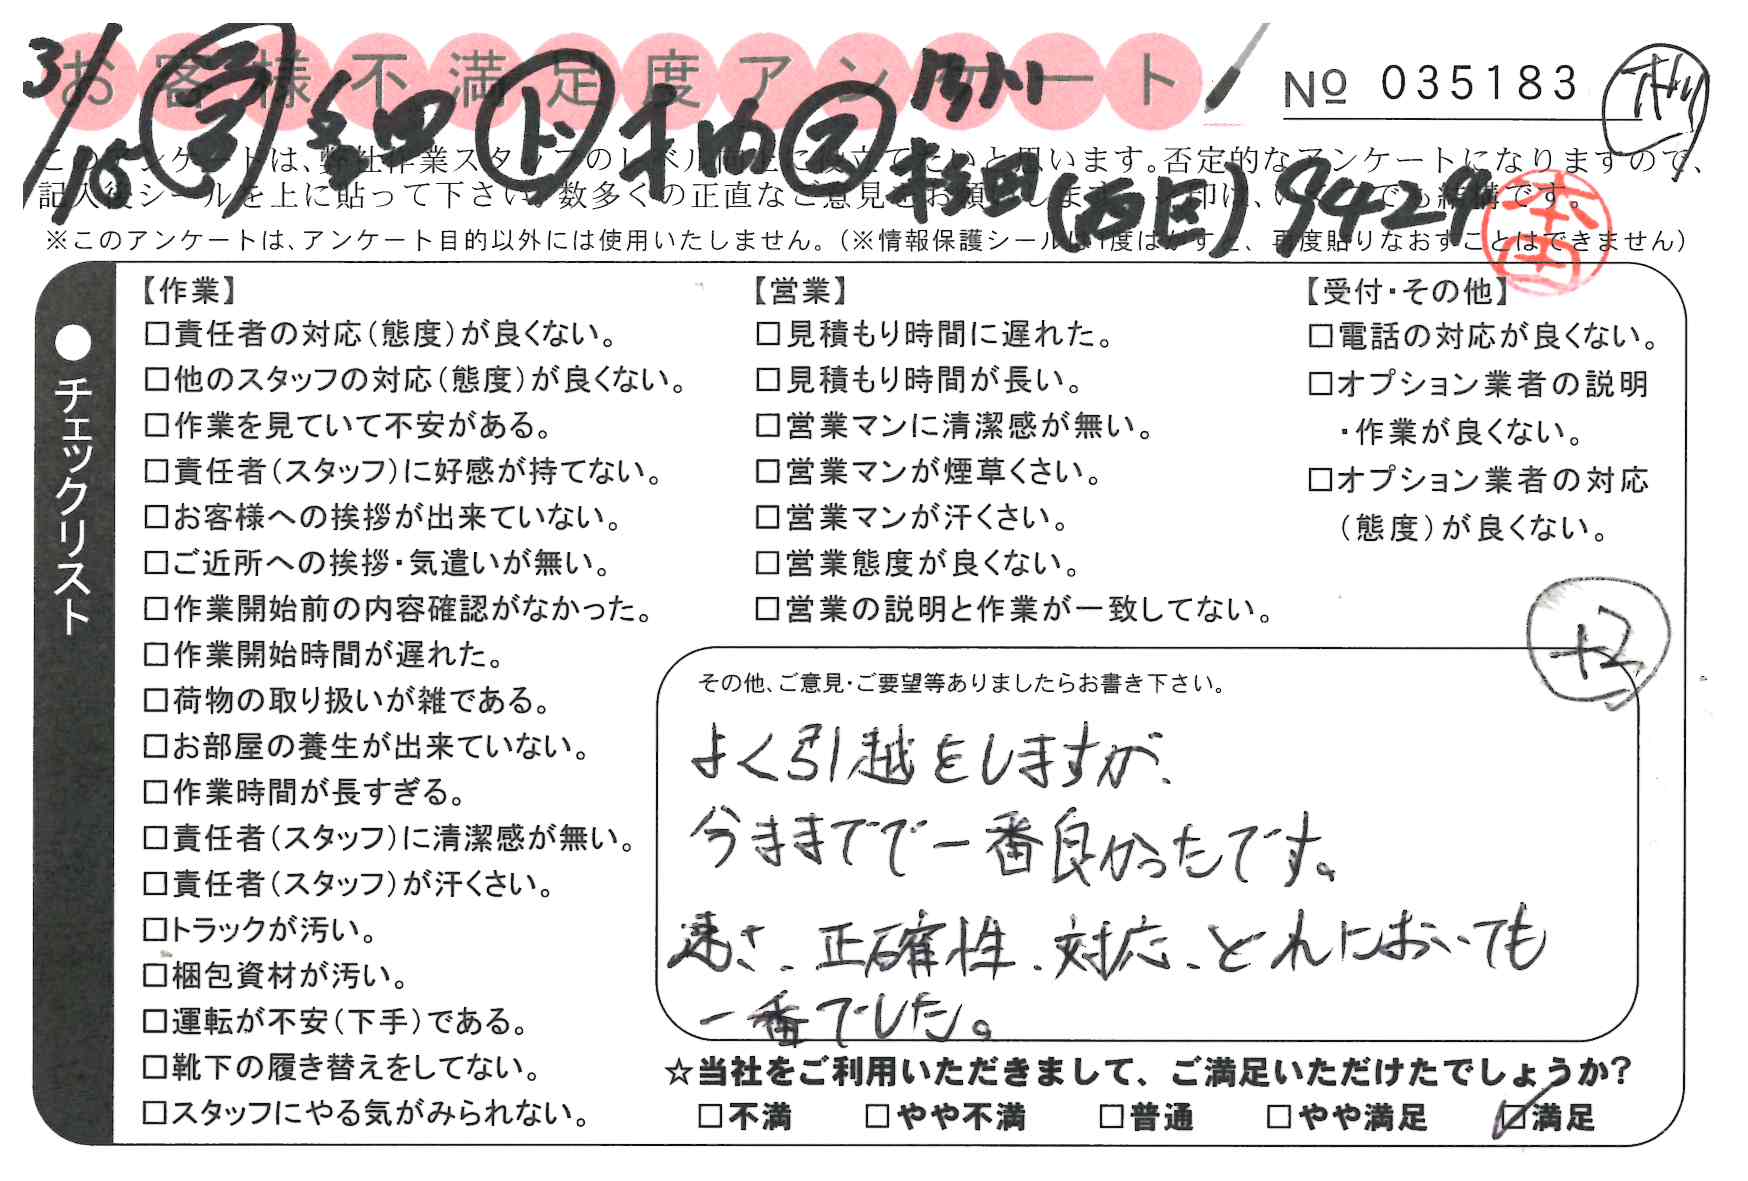 お客様不満足度アンケート
3/15
№ 035183
杉田(西区) 9429
このアンケートは、弊社作業スタッフのレベル向上に役立てたいと思います。否定的なアンケートになりますので、
記入後シールを上に貼って下さい。数多くの正直なご意見をお願いします。
※このアンケートは、アンケート目的以外には使用いたしません。(※情報保護シールは1度はがすと、再度貼りなおすことはできません)
●チェックリスト
【作業】
□責任者の対応(態度)が良くない。
□他のスタッフの対応(態度)が良くない。
□作業を見ていて不安がある。
□責任者(スタッフ)に好感が持てない。
□お客様への挨拶が出来ていない。
□ご近所への挨拶・気遣いが無い。
□作業開始前の内容確認がなかった。
□作業開始時間が遅れた。
□荷物の取り扱いが雑である。
□お部屋の養生が出来ていない。
□作業時間が長すぎる。
□責任者(スタッフ)に清潔感が無い。
□責任者(スタッフ)が汗くさい。
□トラックが汚い。
□梱包資材が汚い。
□運転が不安(下手)である。
□靴下の履き替えをしてない。
□スタッフにやる気がみられない。
【営業】
□見積もり時間に遅れた。
□見積もり時間が長い。
□営業マンに清潔感が無い。
□営業マンが煙草くさい。
□営業マンが汗くさい。
□営業態度が良くない。
□営業の説明と作業が一致してない。
【受付・その他】
□電話の対応が良くない。
□オプション業者の説明
・作業が良くない。
□オプション業者の対応
(態度)が良くない。
その他、ご意見・ご要望等ありましたらお書き下さい。
よく引越をしますが、
今ままでで一番良かったです。
速さ、正確性、対応、とれにおいても
一番でした。
☆当社をご利用いただきまして、ご満足いただけたでしょうか?
□不満 □やや不満 □普通 □やや満足 ☑満足